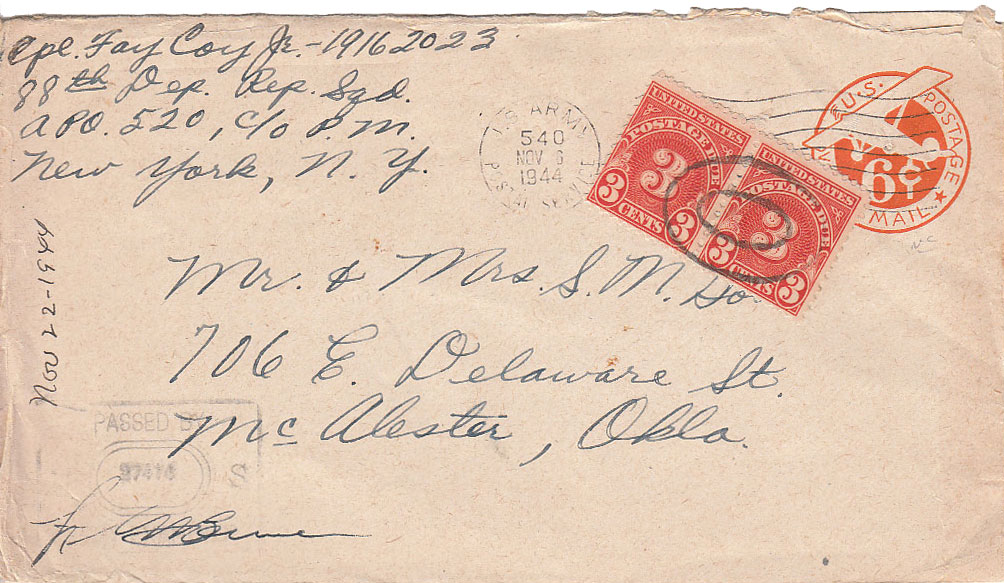 Cpl. Fay Coy Jr. - 19162023
88th Dep. Rep. Sqd.
APO. 520, c/o P.M.
New York, N.Y.
U.S. ARMY
540
NOV 6
1944
UNITED STATES
POSTAGE DUE
3
3 CENTS 3
UNITED STATES
POSTAGE DUE
3
3 CENTS 3
U.S. POSTAGE
6¢
MAIL
Nov 22-1944
Mr. & Mrs. S. M.
706 E. Delaware St.
McAlester, Okla.
PASSED BY
S